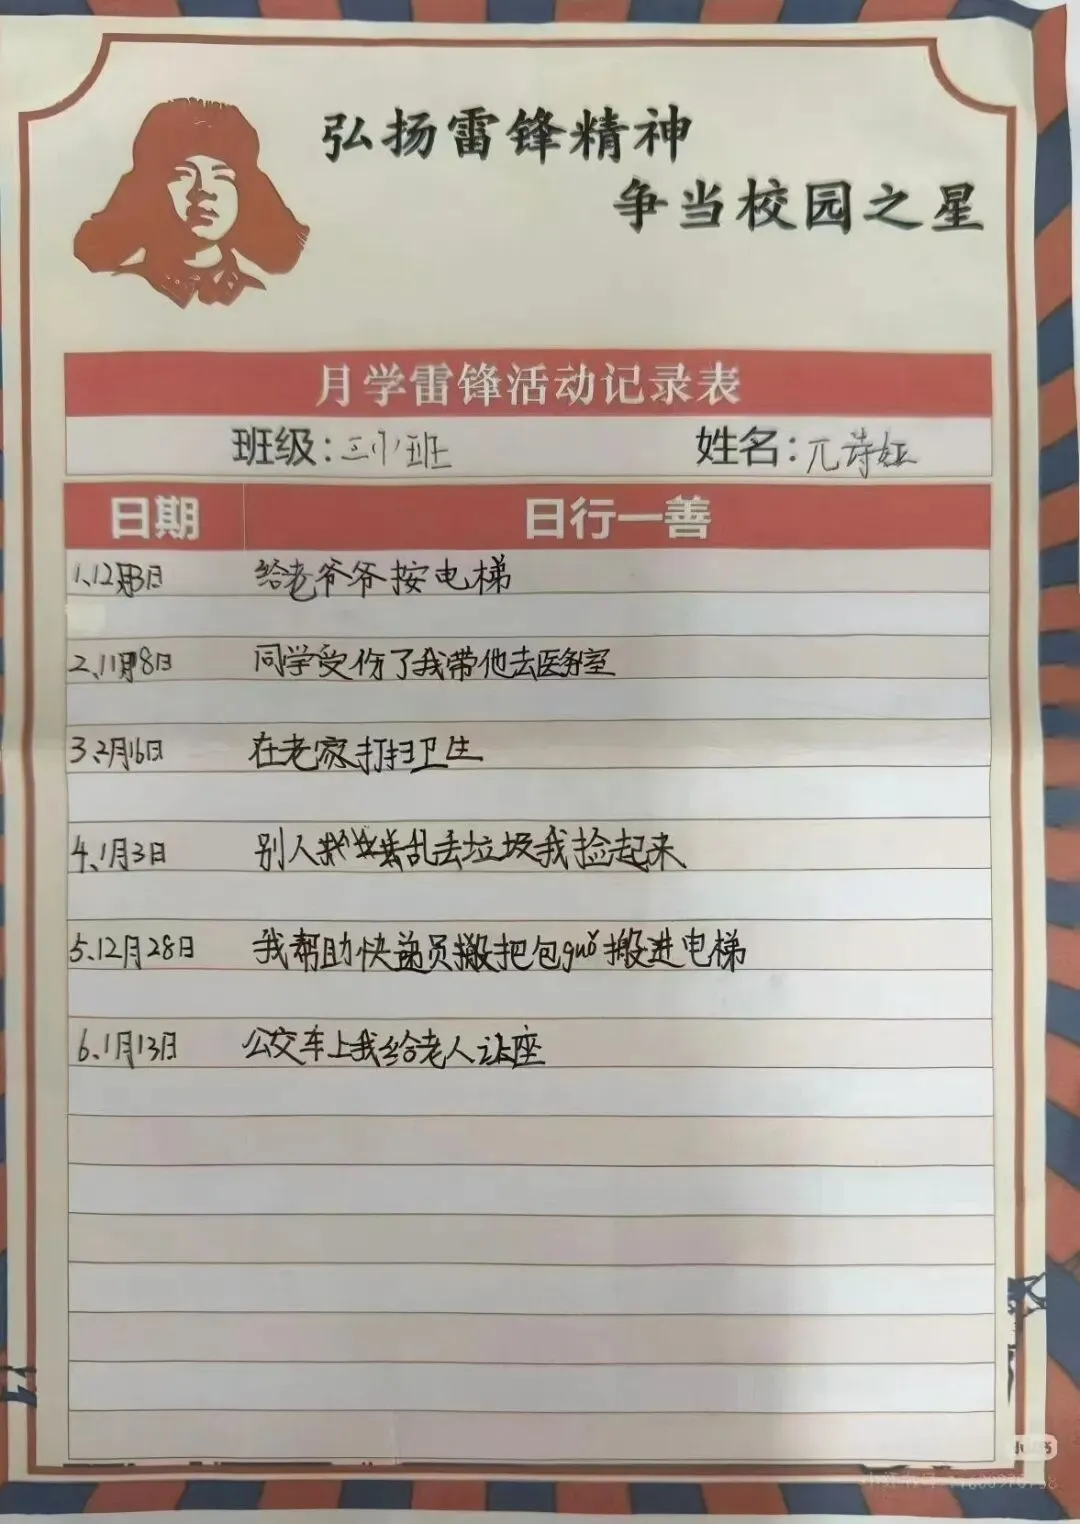 弘扬雷锋精神
争当校园之星
月学雷锋活动记录表
班级：三小班 姓名：兀诗娅
日期 日行一善
1、12月3日 给老爷爷按电梯
2、11月8日 同学受伤了我带他去医务室
3、2月16日 在老家打扫卫生
4、1月3日 别人乱丢垃圾我捡起来
5、12月28日 我帮助快递员搬把包guǒ搬进电梯
6、1月13日 公交车上我给老人让座